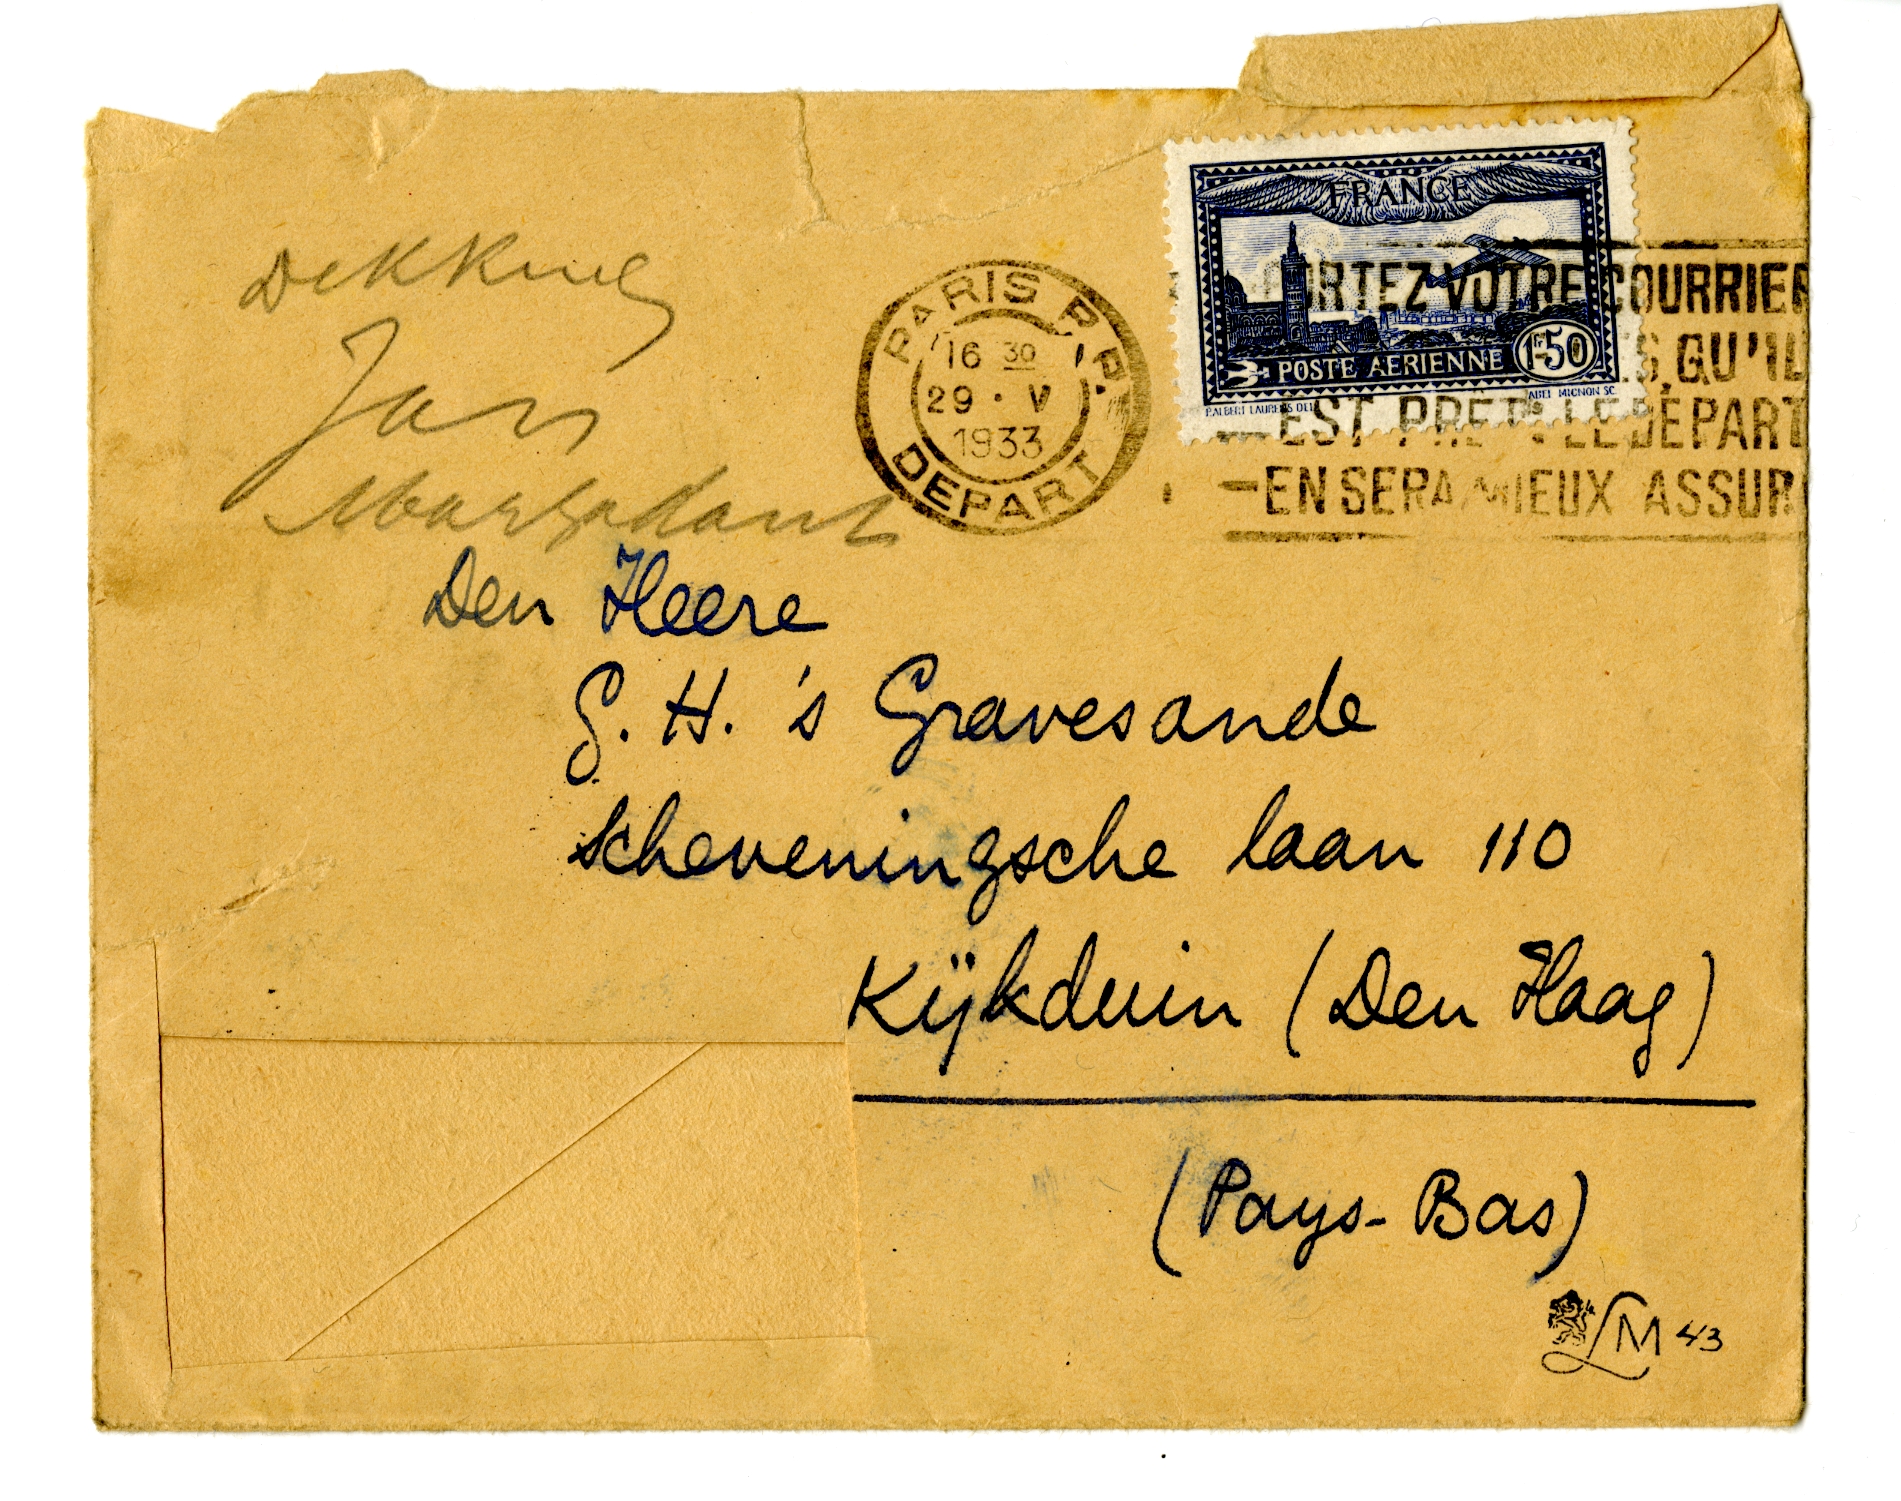 FRANCE
POSTE AERIENNE 1F50
P.ALBERT LAURENS DEL
ABEL MIGNON SC
PARIS R.P.
16 30
29 · V
1933
DEPART
ORTEZ VOTRE COURRIER
S QU'IL
EST PRÊT: LE DÉPART
EN SERA MIEUX ASSUR
Jan
Den Heere
G. H. 's Gravesande
Scheveningsche laan 110
Kijkduin (Den Haag)
(Pays-Bas)
LM 43